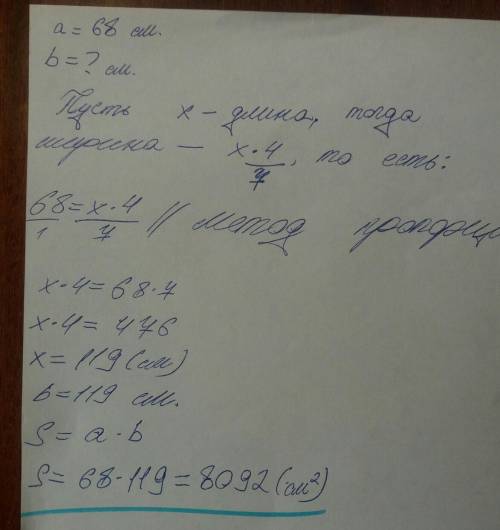 a = 68 см.
b = ? см.
Пусть x - длина, тогда
ширина — x·4/7, то есть:
68/1 = x·4/7 // метод пропорци
x·4 = 68·7
x·4 = 476
x = 119 (см)
b = 119 см.
S = a · b
S = 68·119 = 8092 (см²)